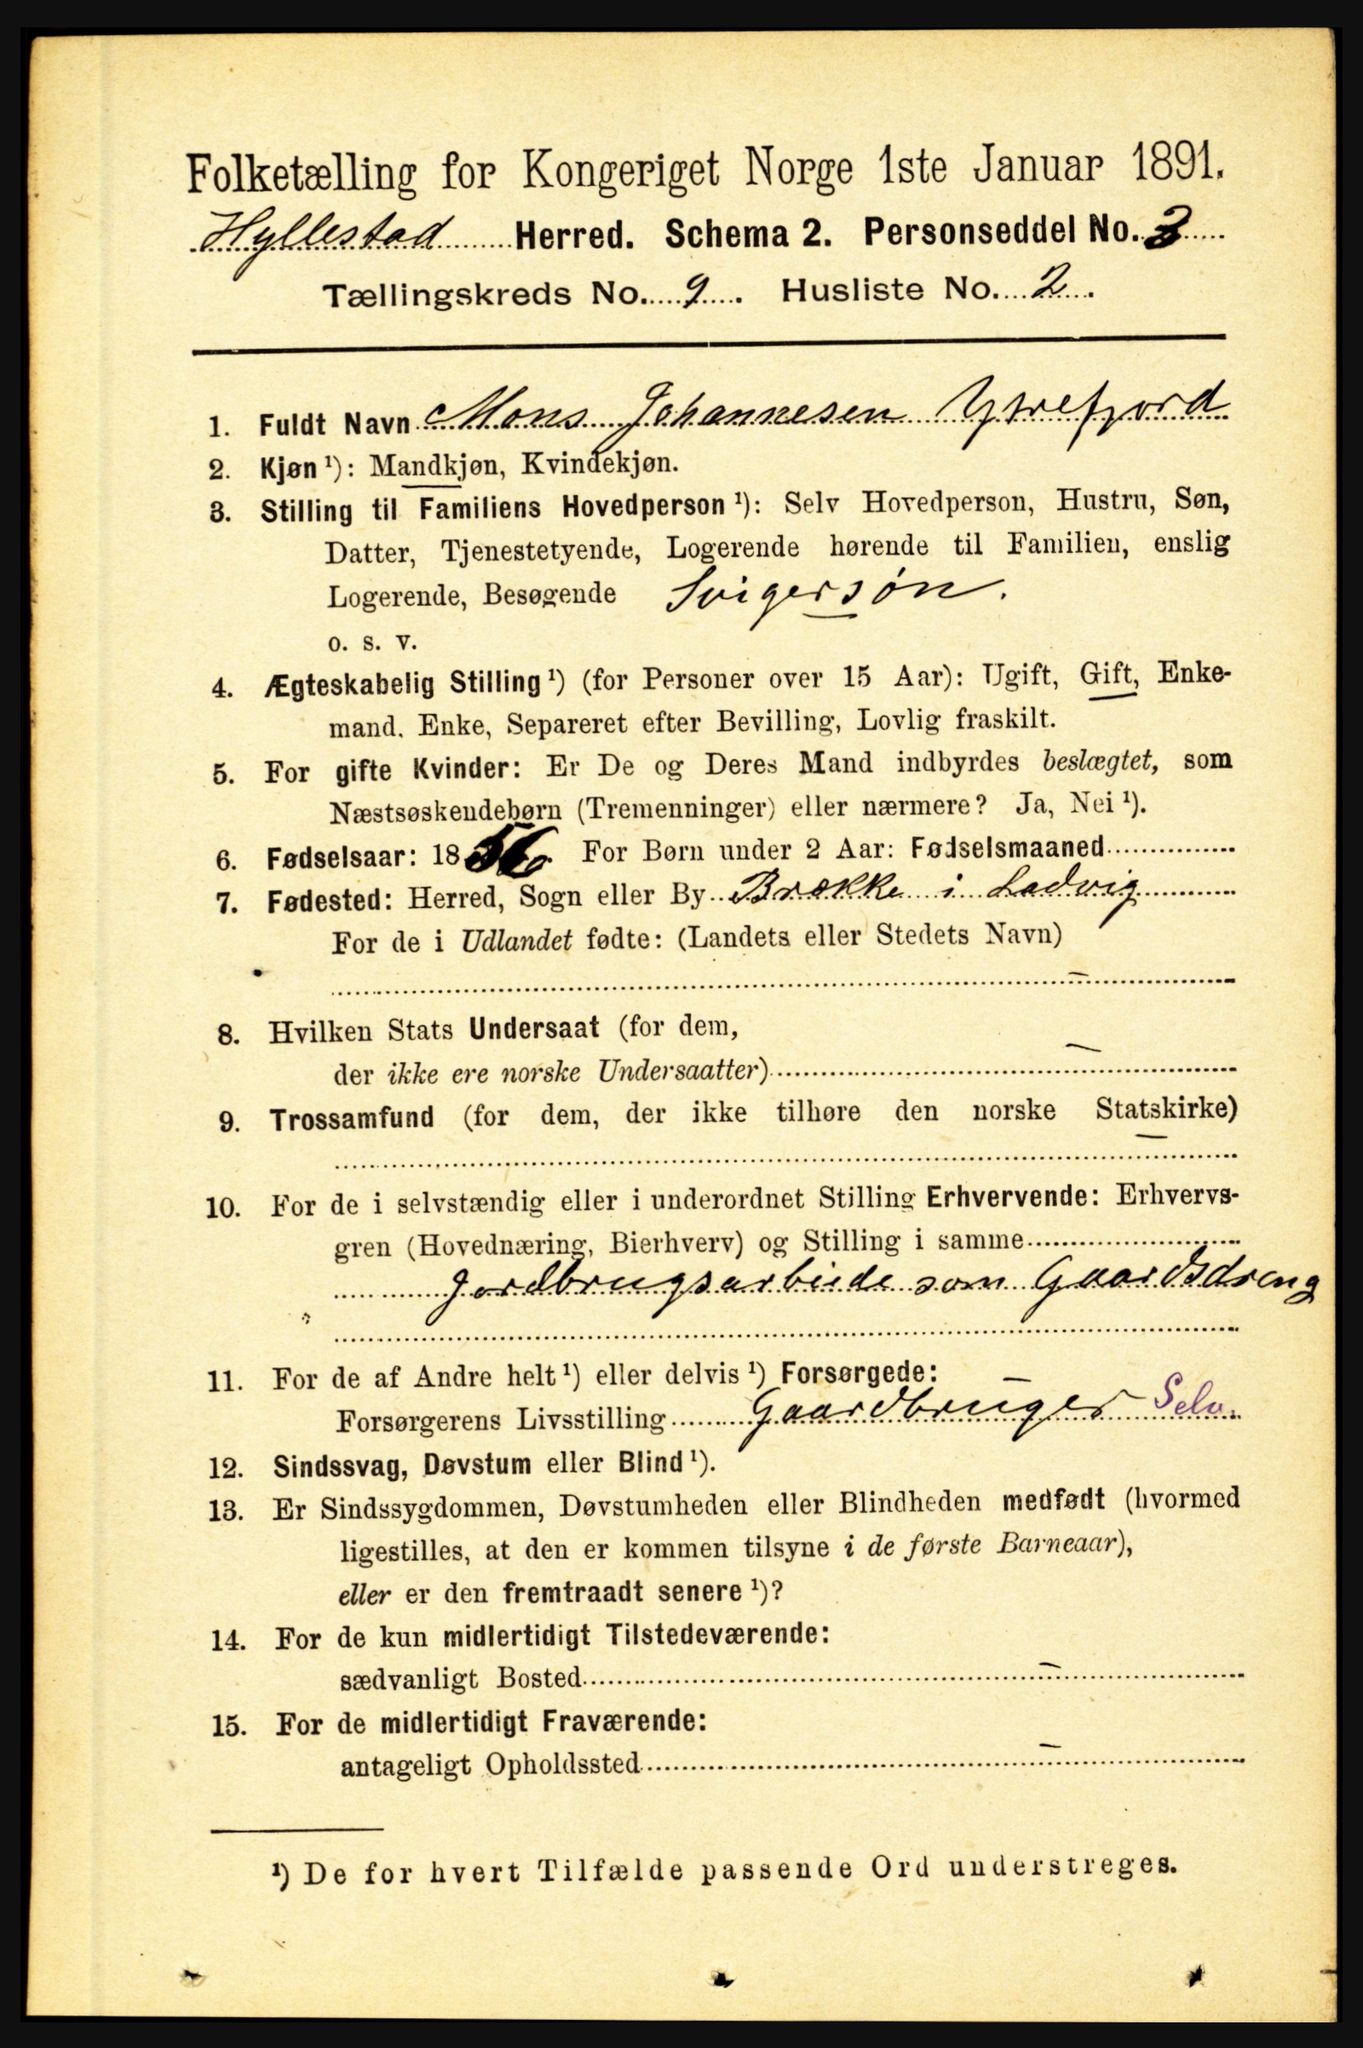 Folketælling for Kongeriget Norge 1ste Januar 1891.
Hyllestad Herred. Schema 2. Personseddel No. 3
Tællingskreds No. 9. Husliste No. 2.
1. Fuldt Navn Mons Johannesen Ytrefjord
2. Kjøn ¹): Mandkjøn, Kvindekjøn.
3. Stilling til Familiens Hovedperson ¹): Selv Hovedperson, Hustru, Søn,
Datter, Tjenestetyende, Logerende hørende til Familien, enslig
Logerende, Besøgende Svigersøn.
o. s. v.
4. Ægteskabelig Stilling ¹) (for Personer over 15 Aar): Ugift, Gift, Enke-
mand, Enke, Separeret efter Bevilling, Lovlig fraskilt.
5. For gifte Kvinder: Er De og Deres Mand indbyrdes beslægtet, som
Næstsøskendebørn (Tremenninger) eller nærmere? Ja, Nei ¹).
6. Fødselsaar: 1856. For Børn under 2 Aar: Fødselsmaaned
7. Fødested: Herred, Sogn eller By Brække i Ladvig
For de i Udlandet fødte: (Landets eller Stedets Navn)
–
8. Hvilken Stats Undersaat (for dem,
der ikke ere norske Undersaatter) –
9. Trossamfund (for dem, der ikke tilhøre den norske Statskirke)
–
10. For de i selvstændig eller i underordnet Stilling Erhvervende: Erhvervs-
gren (Hovednæring, Bierhverv) og Stilling i samme
Jordbrugsarbeide som Gaardsdreng
11. For de af Andre helt ¹) eller delvis ¹) Forsørgede:
Forsørgerens Livsstilling Gaardbruger Selv.
12. Sindssvag, Døvstum eller Blind ¹).
13. Er Sindssygdommen, Døvstumheden eller Blindheden medfødt (hvormed
ligestilles, at den er kommen tilsyne i de første Barneaar),
eller er den fremtraadt senere ¹)?
14. For de kun midlertidigt Tilstedeværende:
sædvanligt Bosted –
15. For de midlertidigt Fraværende:
antageligt Opholdssted –
¹) De for hvert Tilfælde passende Ord understreges.